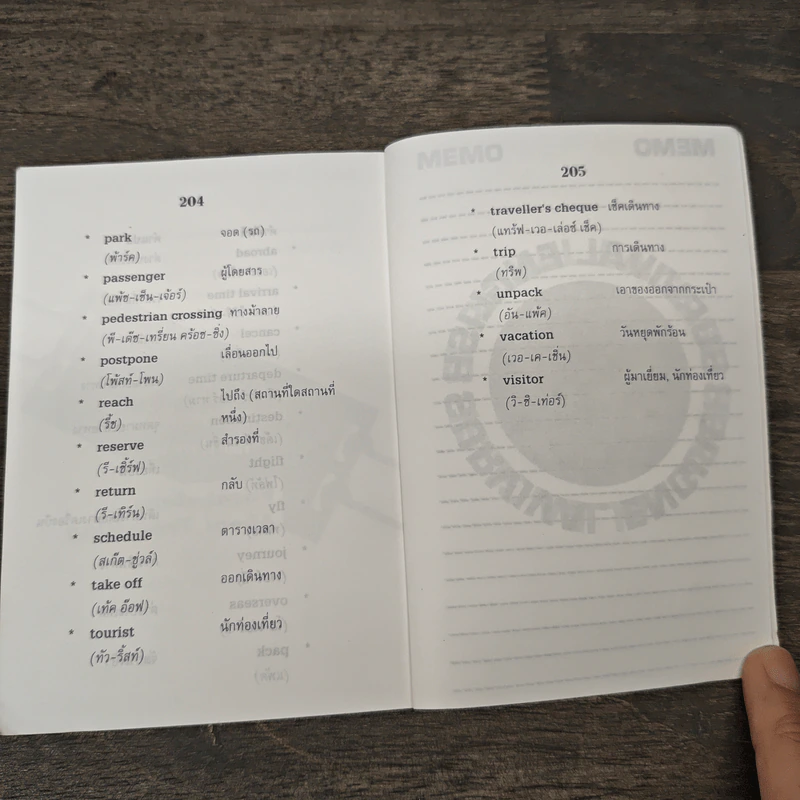 204
* park จอด (รถ)
(พ้าร์ค)
* passenger ผู้โดยสาร
(แพ้ซ-เซ็น-เจ้อร์)
* pedestrian crossing ทางม้าลาย
(พี-เด๊ซ-เทรี่ยน คร้อซ-ซิ่ง)
* postpone เลื่อนออกไป
(โพ้สท์-โพน)
* reach ไปถึง (สถานที่ใดสถานที่
(รี้ช) หนึ่ง)
* reserve สำรองที่
(รี-เซิ้ร์ฟ)
* return กลับ
(รี-เทิร์น)
* schedule ตารางเวลา
(สเก๊ด-ชู่วล์)
* take off ออกเดินทาง
(เท้ค อ๊อฟ)
* tourist นักท่องเที่ยว
(ทัว-ริ้สท์)
MEMO
205
* traveller's cheque เช็คเดินทาง
(แทร้ฟ-เวอ-เล่อซ์ เช็ค)
* trip การเดินทาง
(ทริพ)
* unpack เอาของออกจากกระเป๋า
(อัน-แพ้ค)
* vacation วันหยุดพักร้อน
(เวอ-เค-เชิ่น)
* visitor ผู้มาเยี่ยม, นักท่องเที่ยว
(วิ-ซิ-เท่อร์)